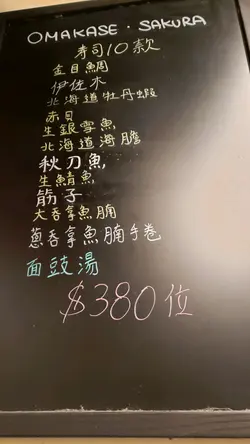 OMAKASE · SAKURA
寿司10款
金目鯛
伊佐木
北海道牡丹蝦
赤貝
生銀雪魚
北海道海膽
秋刀魚
生鯖魚
筋子
大吞拿魚腩
蔥吞拿魚腩手卷
面豉湯
$380位